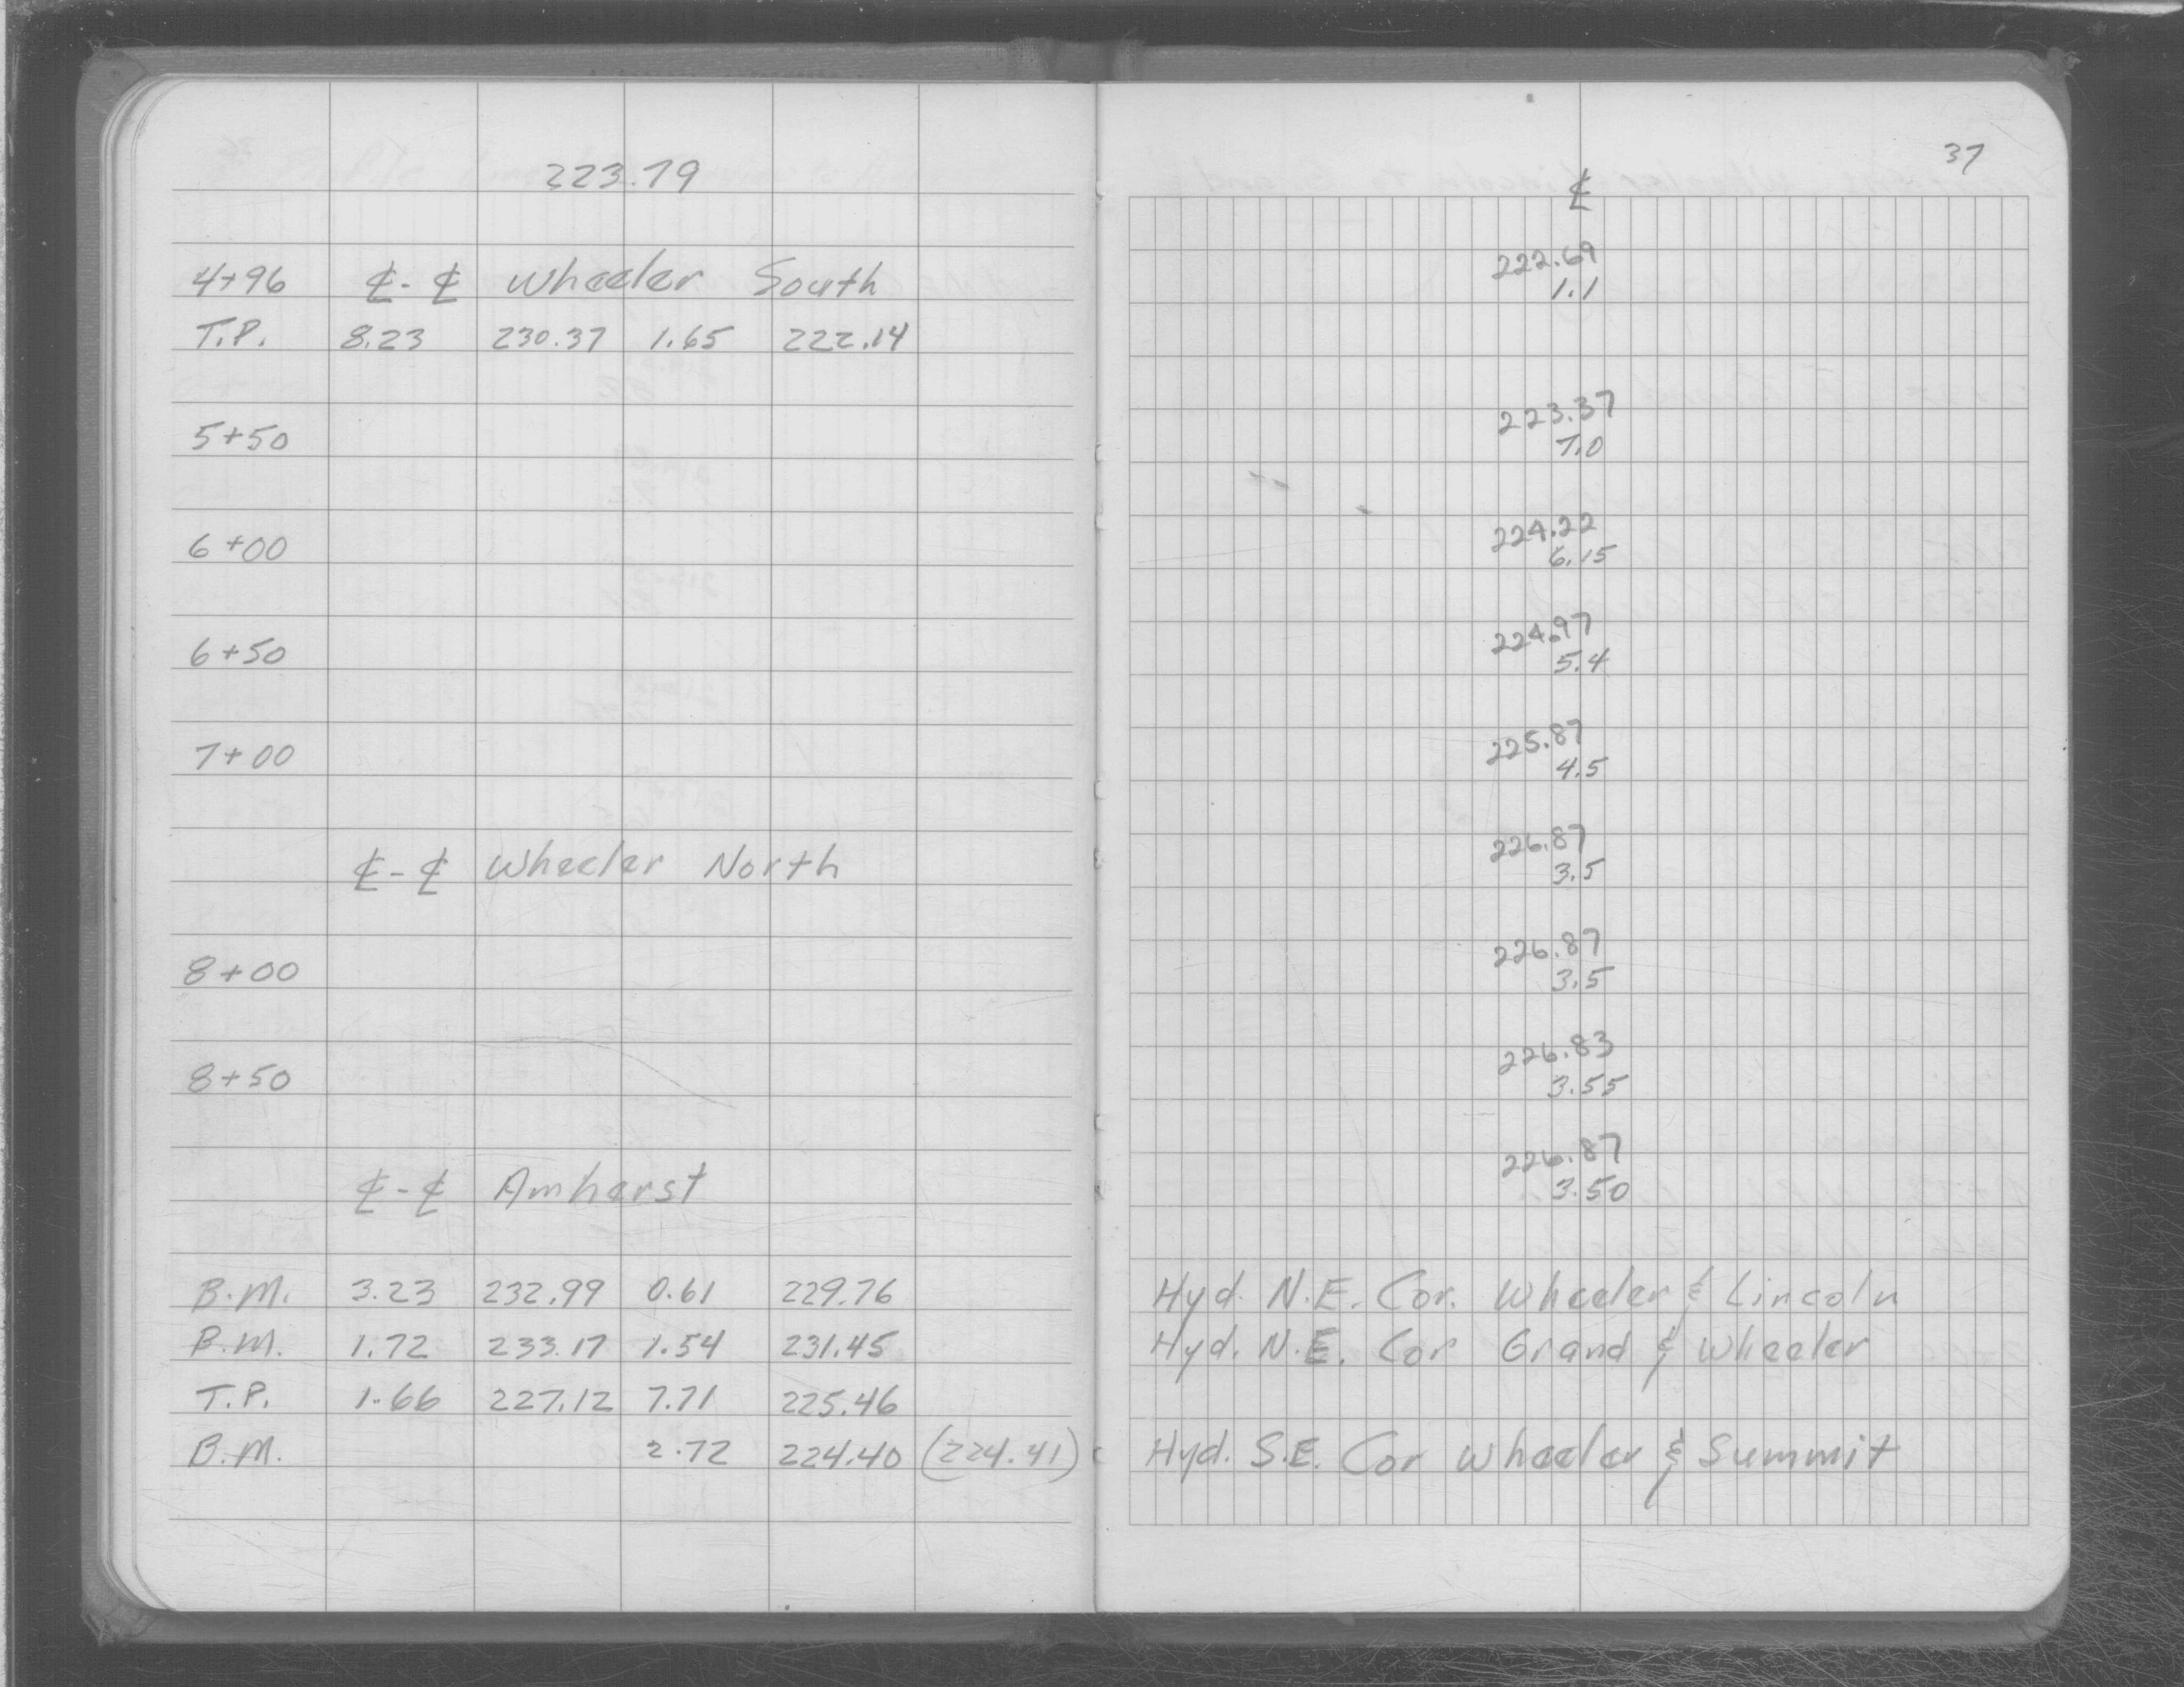 223.79
4+96 ℄-℄ Wheeler South
T.P. 8.23 230.37 1.65 222.14
5+50
6+00
6+50
7+00
℄-℄ Wheeler North
8+00
8+50
℄-℄ Amherst
B.M. 3.23 232.99 0.61 229.76
B.M. 1.72 233.17 1.54 231.45
T.P. 1.66 227.12 7.71 225.46
B.M. 2.72 224.40 (224.41)
37
℄
222.69
1.1
223.37
7.0
224.22
6.15
224.97
5.4
225.87
4.5
226.87
3.5
226.87
3.5
226.83
3.55
226.87
3.50
Hyd. N.E. Cor. Wheeler & Lincoln
Hyd. N.E. Cor Grand & Wheeler
Hyd. S.E. Cor Wheeler & Summit